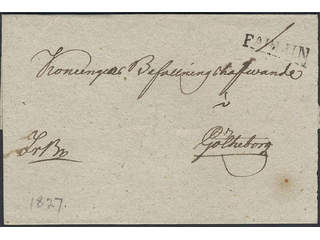 FAHLUN
Konungens Befallningshafwande
i
Götheborg
FrBr
1827.